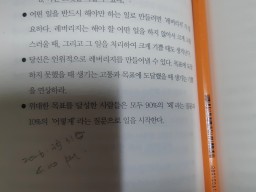 ● 어떤 일을 반드시 해야만 하는 일로 만들려면 레버리지가 필
요하다. 레버리지는 해야 할 어떤 일을 하지 않아서
스러울 때, 그리고 그 일을 처리하여 크게 기쁠 때
● 당신은 인위적으로 레버리지를 만들어낼 수 있다. 목표에
하지 못했을 때 생기는 고통과 목표에 도달했을 때 생기는
을 연상하라.
● 위대한 목표를 달성한 사람들은 모두 90%의 '왜'라는
10%의 '어떻게'라는 질문으로 일을 시작한다.